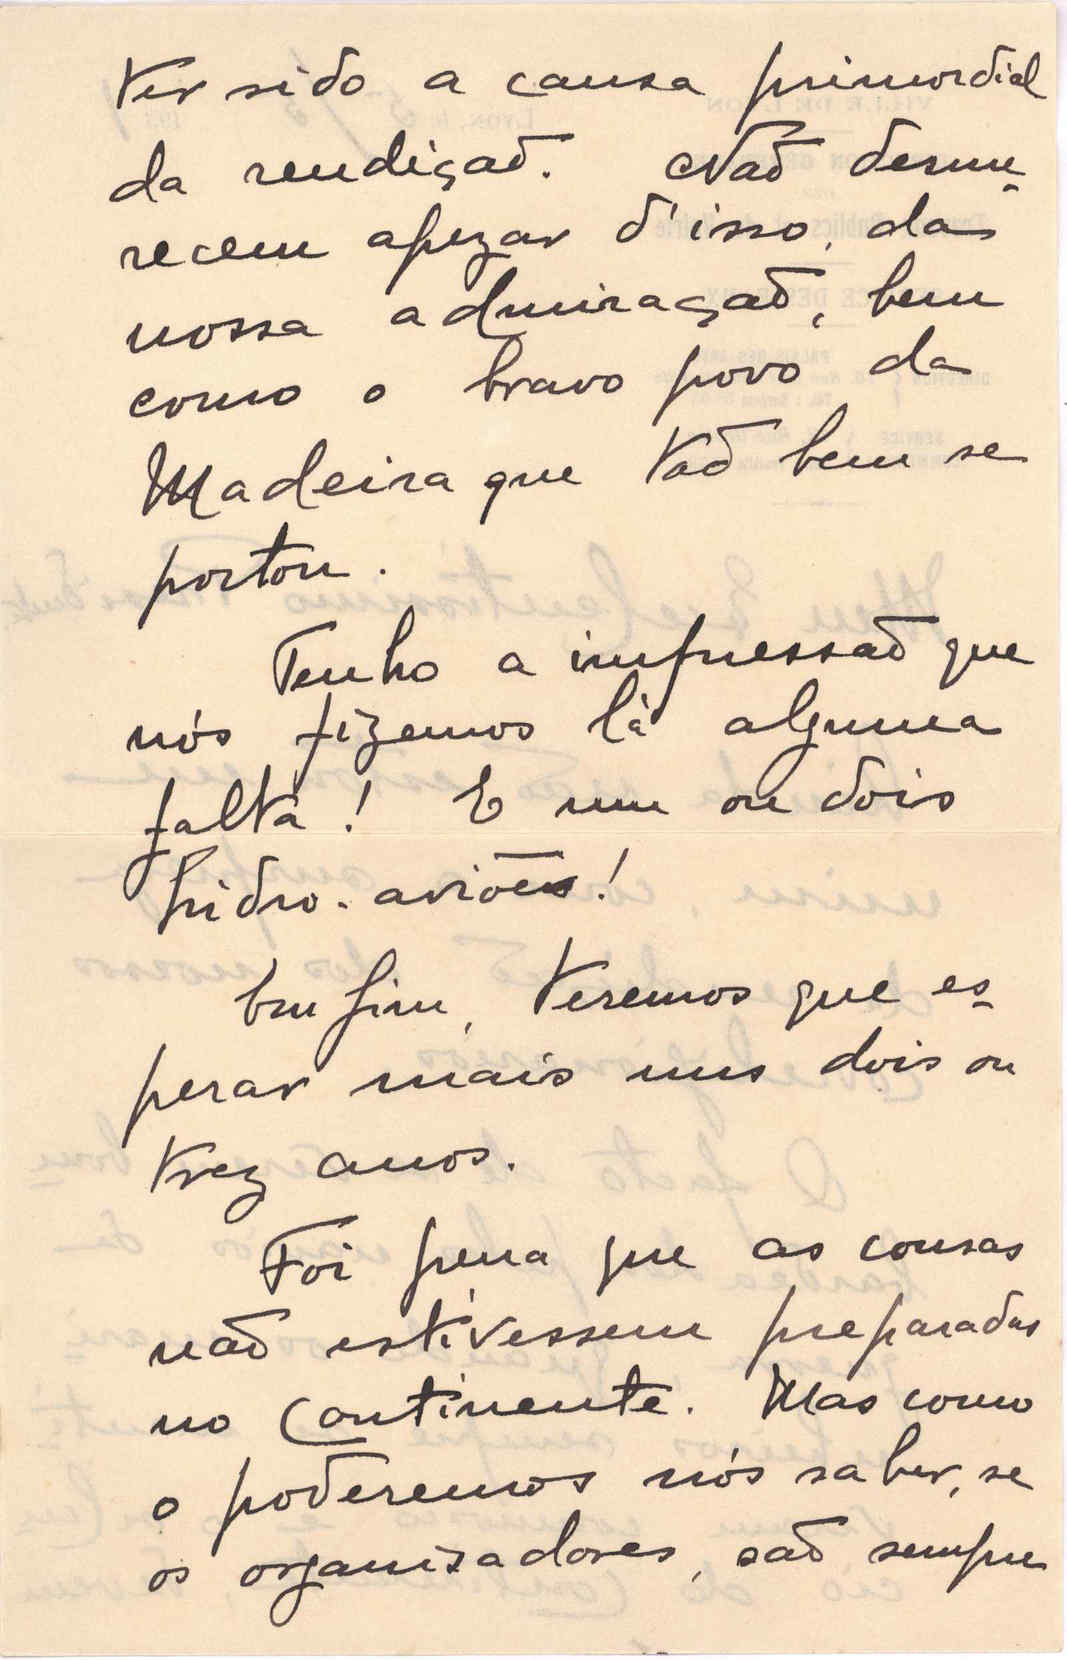 ter sido a causa primordial
da rendição. Não desme-
recem apezar d'isso, da
nossa admiração, bem
como o bravo povo da
Madeira que tão bem se
portou.
Tenho a impressão que
nós fizemos lá alguma
falta! E um ou dois
hidro-aviões!
Emfim, teremos que es-
perar mais uns dois ou
trez anos.
Foi pena que as cousas
não estivessem preparadas
no Continente. Mas como
o poderemos nós saber, se
os organisadores, são sempre